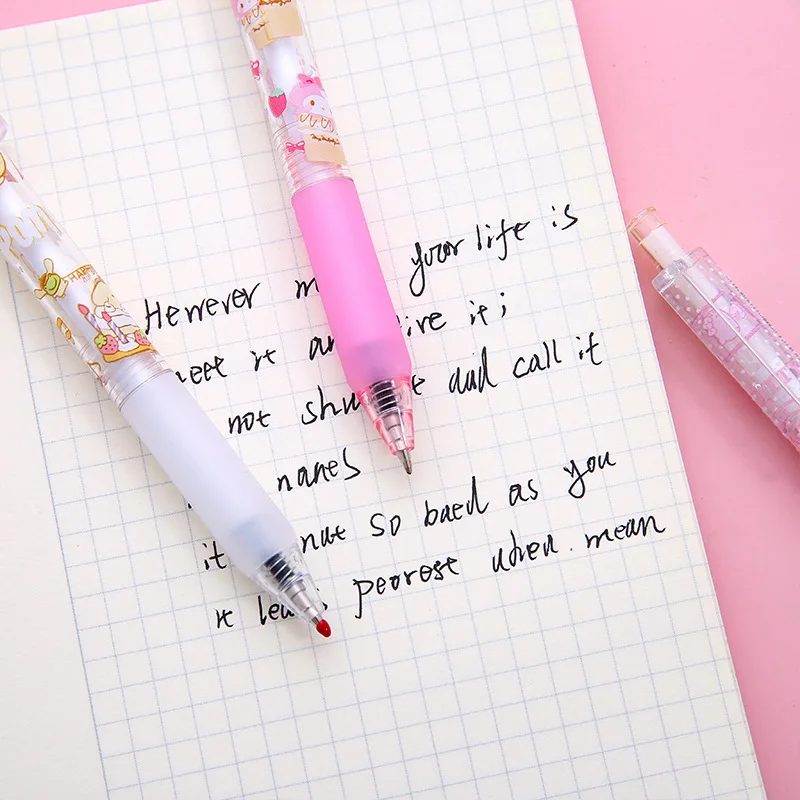 Herrever m your life is
neet it an ive it;
not shu t and call it
nanes
it nut so baed as you
it le s peorest when. mean